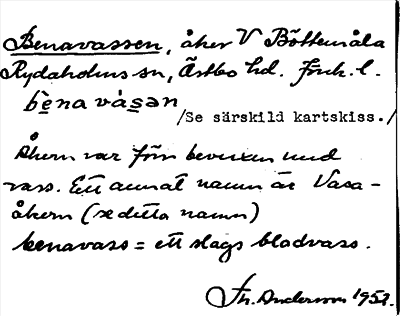 Benavassen, åker V Böttemåla
Rydaholms sn, Östbo hd. Jönk. l.
bènavàsən
/Se särskild kartskiss./
Åkern var förr bevuxen med
vass. Ett annat namn är Vasa-
åkern (se detta namn)
benavass = ett slags bladvass.
Fr. Anderson 195